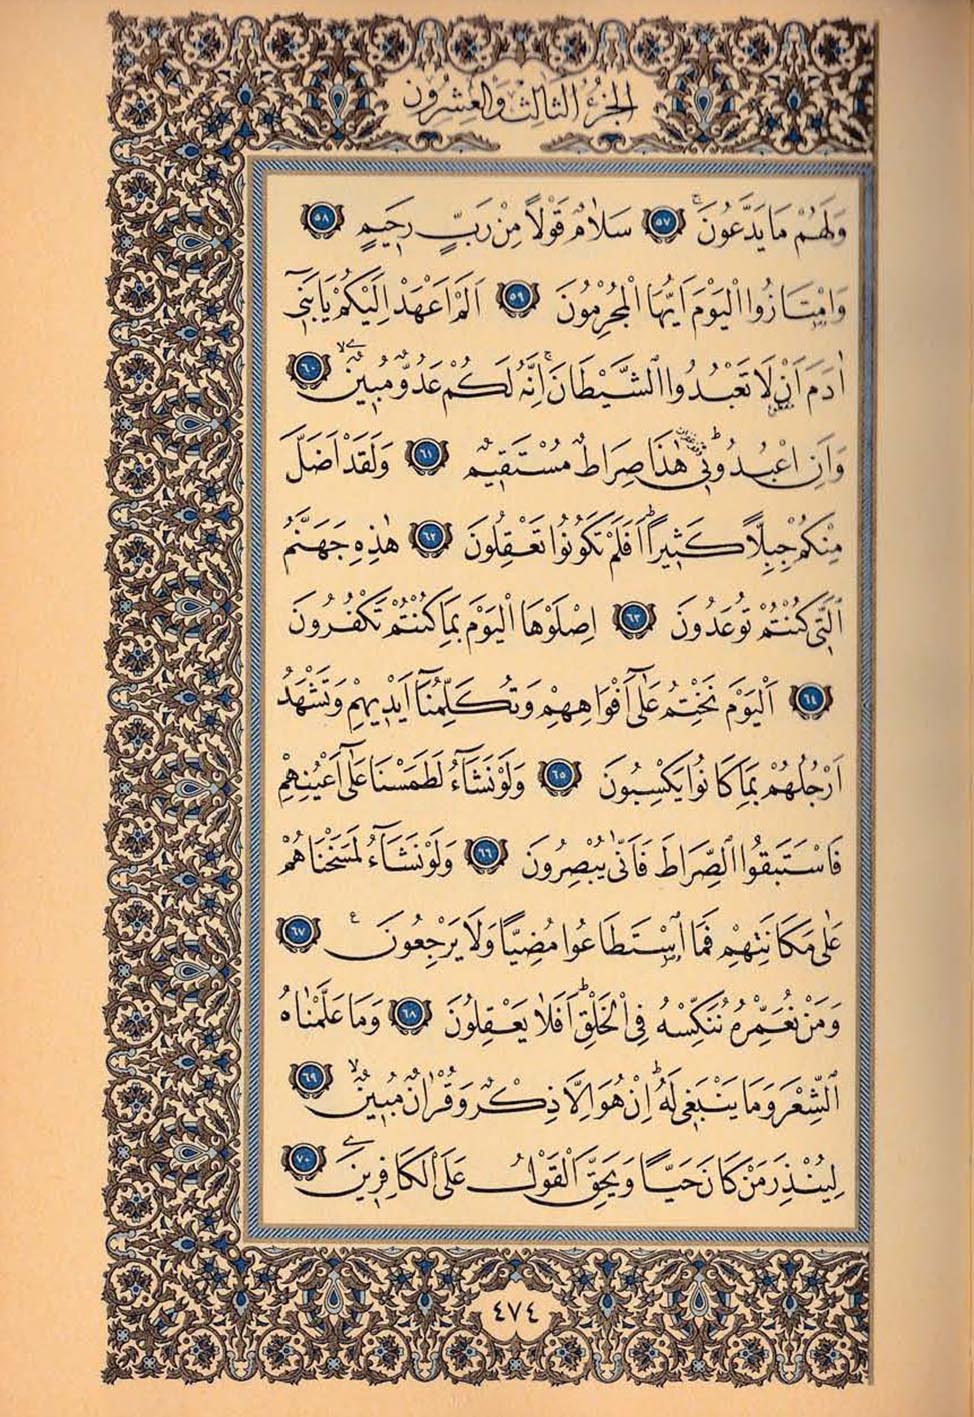 الجزء الثالث والعشرون
وَلَهُمْ مَا يَدَّعُونَۚ ﴿٥٧﴾ سَلَامٌ قَوْلاً مِنْ رَبٍّ رَحِيمٍ ﴿٥٨﴾
وَامْتَازُوا الْيَوْمَ اَيُّهَا الْمُجْرِمُونَ ﴿٥٩﴾ اَلَمْ اَعْهَدْ اِلَيْكُمْ يَا بَنِٓى
اٰدَمَ اَنْ لَا تَعْبُدُوا الشَّيْطَانَۚ اِنَّهُ لَكُمْ عَدُوٌّ مُبِينٌۙ ﴿٦٠﴾
وَاَنِ اعْبُدُونِىۜ هٰذَا صِرَاطٌ مُسْتَقِيمٌ ﴿٦١﴾ وَلَقَدْ اَضَلَّ
مِنْكُمْ جِبِلًّا كَثِيرًاۜ اَفَلَمْ تَكُونُوا تَعْقِلُونَ ﴿٦٢﴾ هٰذِهِ جَهَنَّمُ
الَّتِى كُنْتُمْ تُوعَدُونَ ﴿٦٣﴾ اِصْلَوْهَا الْيَوْمَ بِمَا كُنْتُمْ تَكْفُرُونَ
﴿٦٤﴾ اَلْيَوْمَ نَخْتِمُ عَلٰٓى اَفْوَاهِهِمْ وَتُكَلِّمُنَٓا اَيْدِيهِمْ وَتَشْهَدُ
اَرْجُلُهُمْ بِمَا كَانُوا يَكْسِبُونَ ﴿٦٥﴾ وَلَوْ نَشَٓاءُ لَطَمَسْنَا عَلٰٓى اَعْيُنِهِمْ
فَاسْتَبَقُوا الصِّرَاطَ فَاَنّٰى يُبْصِرُونَ ﴿٦٦﴾ وَلَوْ نَشَٓاءُ لَمَسَخْنَاهُمْ
عَلٰى مَكَانَتِهِمْ فَمَا اسْتَطَاعُوا مُضِيًّا وَلَا يَرْجِعُونَ ع ﴿٦٧﴾
وَمَنْ نُعَمِّرْهُ نُنَكِّسْهُ فِى الْخَلْقِۜ اَفَلَا يَعْقِلُونَ ﴿٦٨﴾ وَمَا عَلَّمْنَاهُ
الشِّعْرَ وَمَا يَنْبَغِى لَهُۜ اِنْ هُوَ اِلَّا ذِكْرٌ وَقُرْاٰنٌ مُبِينٌۙ ﴿٦٩﴾
لِيُنْذِرَ مَنْ كَانَ حَيًّا وَيَحِقَّ الْقَوْلُ عَلَى الْكَافِرِينَ ﴿٧٠﴾
٤٧٤